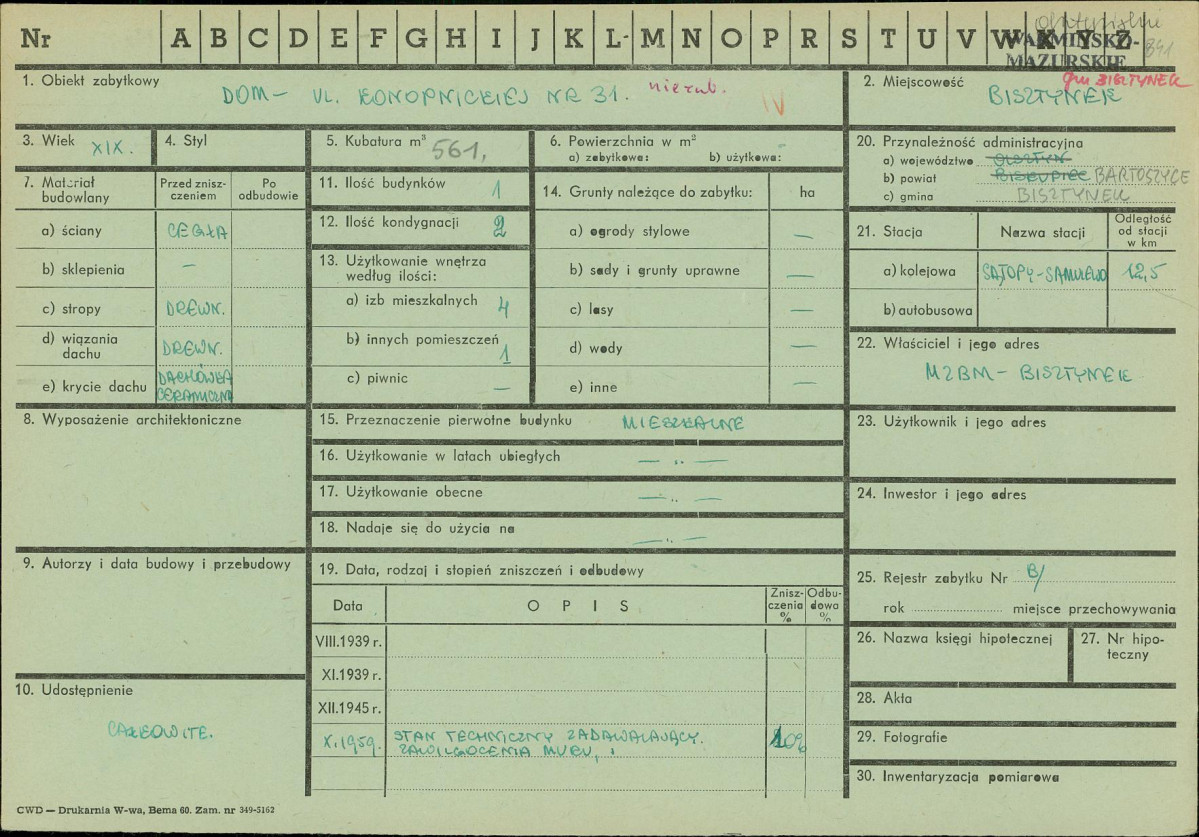 Nr A B C D E F G H I J K L M N O P R S T U V W X Y Z
WARMIŃSKO-
MAZURSKIE
841
1. Obiekt zabytkowy
DOM - UL. KONOPNICKIEJ NR 31.
IV
2. Miejscowość
gm BISZTYNEK
BISZTYNEK
3. Wiek XIX.
4. Styl
5. Kubatura m³ 561,
6. Powierzchnia w m²
a) zabytkowa: b) użytkowa:
20. Przynależność administracyjna
a) województwo OLSZTYN
b) powiat BISKUPIEC BARTOSZYCE
c) gmina BISZTYNEK
7. Materiał budowlany
Przed zniszczeniem
Po odbudowie
a) ściany CEGŁA
b) sklepienia —
c) stropy DREWN.
d) wiązania dachu DREWN.
e) krycie dachu DACHÓWKA CERAMICZNA
11. Ilość budynków 1
12. Ilość kondygnacji 2
13. Użytkowanie wnętrza według ilości:
a) izb mieszkalnych 4
b) innych pomieszczeń 1
c) piwnic —
14. Grunty należące do zabytku: ha
a) ogrody stylowe —
b) sady i grunty uprawne —
c) lasy —
d) wody —
e) inne —
21. Stacja
Nazwa stacji
Odległość od stacji w km
a) kolejowa SĄTOPY-SAMULEWO 12,5
b) autobusowa
22. Właściciel i jego adres
MZBM - BISZTYNEK
8. Wyposażenie architektoniczne
15. Przeznaczenie pierwotne budynku MIESZKALNE
16. Użytkowanie w latach ubiegłych — „ —
17. Użytkowanie obecne — „ —
18. Nadaje się do użycia na — „ —
23. Użytkownik i jego adres
24. Inwestor i jego adres
9. Autorzy i data budowy i przebudowy
19. Data, rodzaj i stopień zniszczeń i odbudowy
Data
OPIS
Zniszczenia %
Odbudowa %
VIII.1939 r.
XI.1939 r.
XII.1945 r.
X.1959. STAN TECHNICZNY ZADAWALAJĄCY.
ZAWILGOCENIA MURU,
25. Rejestr zabytku Nr B/
rok miejsce przechowywania
26. Nazwa księgi hipotecznej
27. Nr hipoteczny
10. Udostępnienie
CAŁKOWITE.
28. Akta
29. Fotografie
30. Inwentaryzacja pomiarowa
CWD — Drukarnia W-wa, Bema 60. Zam. nr 349-5162